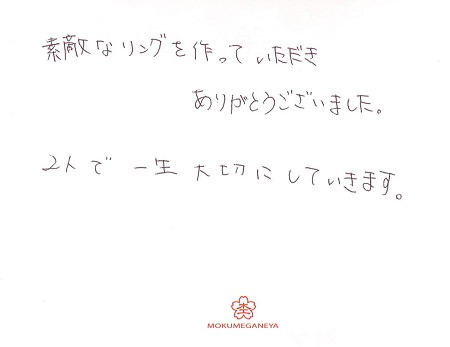 素敵なリングを作っていただき
ありがとうございました。
2人で一生大切にしていきます。
MOKUMEGANEYA